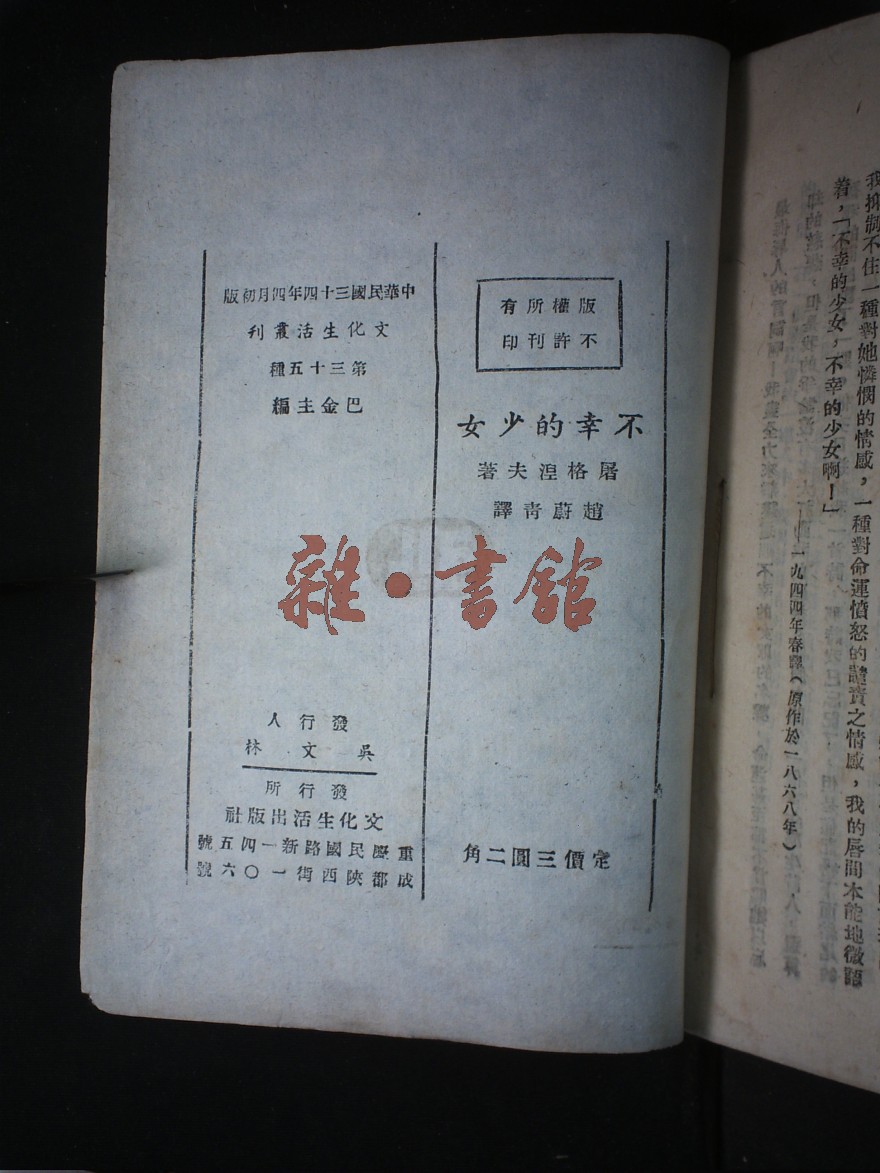 版權所有
不許刊印
不幸的少女
屠格涅夫著
趙蔚青譯
定價三圓二角
中華民國三十四年四月初版
文化生活叢刊
第三十五種
巴金主編
發行人
吳文林
發行所
文化生活出版社
重慶民國路新一四五號
成都陝西街一〇六號
雜·書館
我抑制不住一種對她憐憫的情感，一種對命運憤怒的譴責之情感，我的唇間本能地微語
着，「不幸的少女，不幸的少女啊！」
——一九四四年春譯（原作於一八六八年）